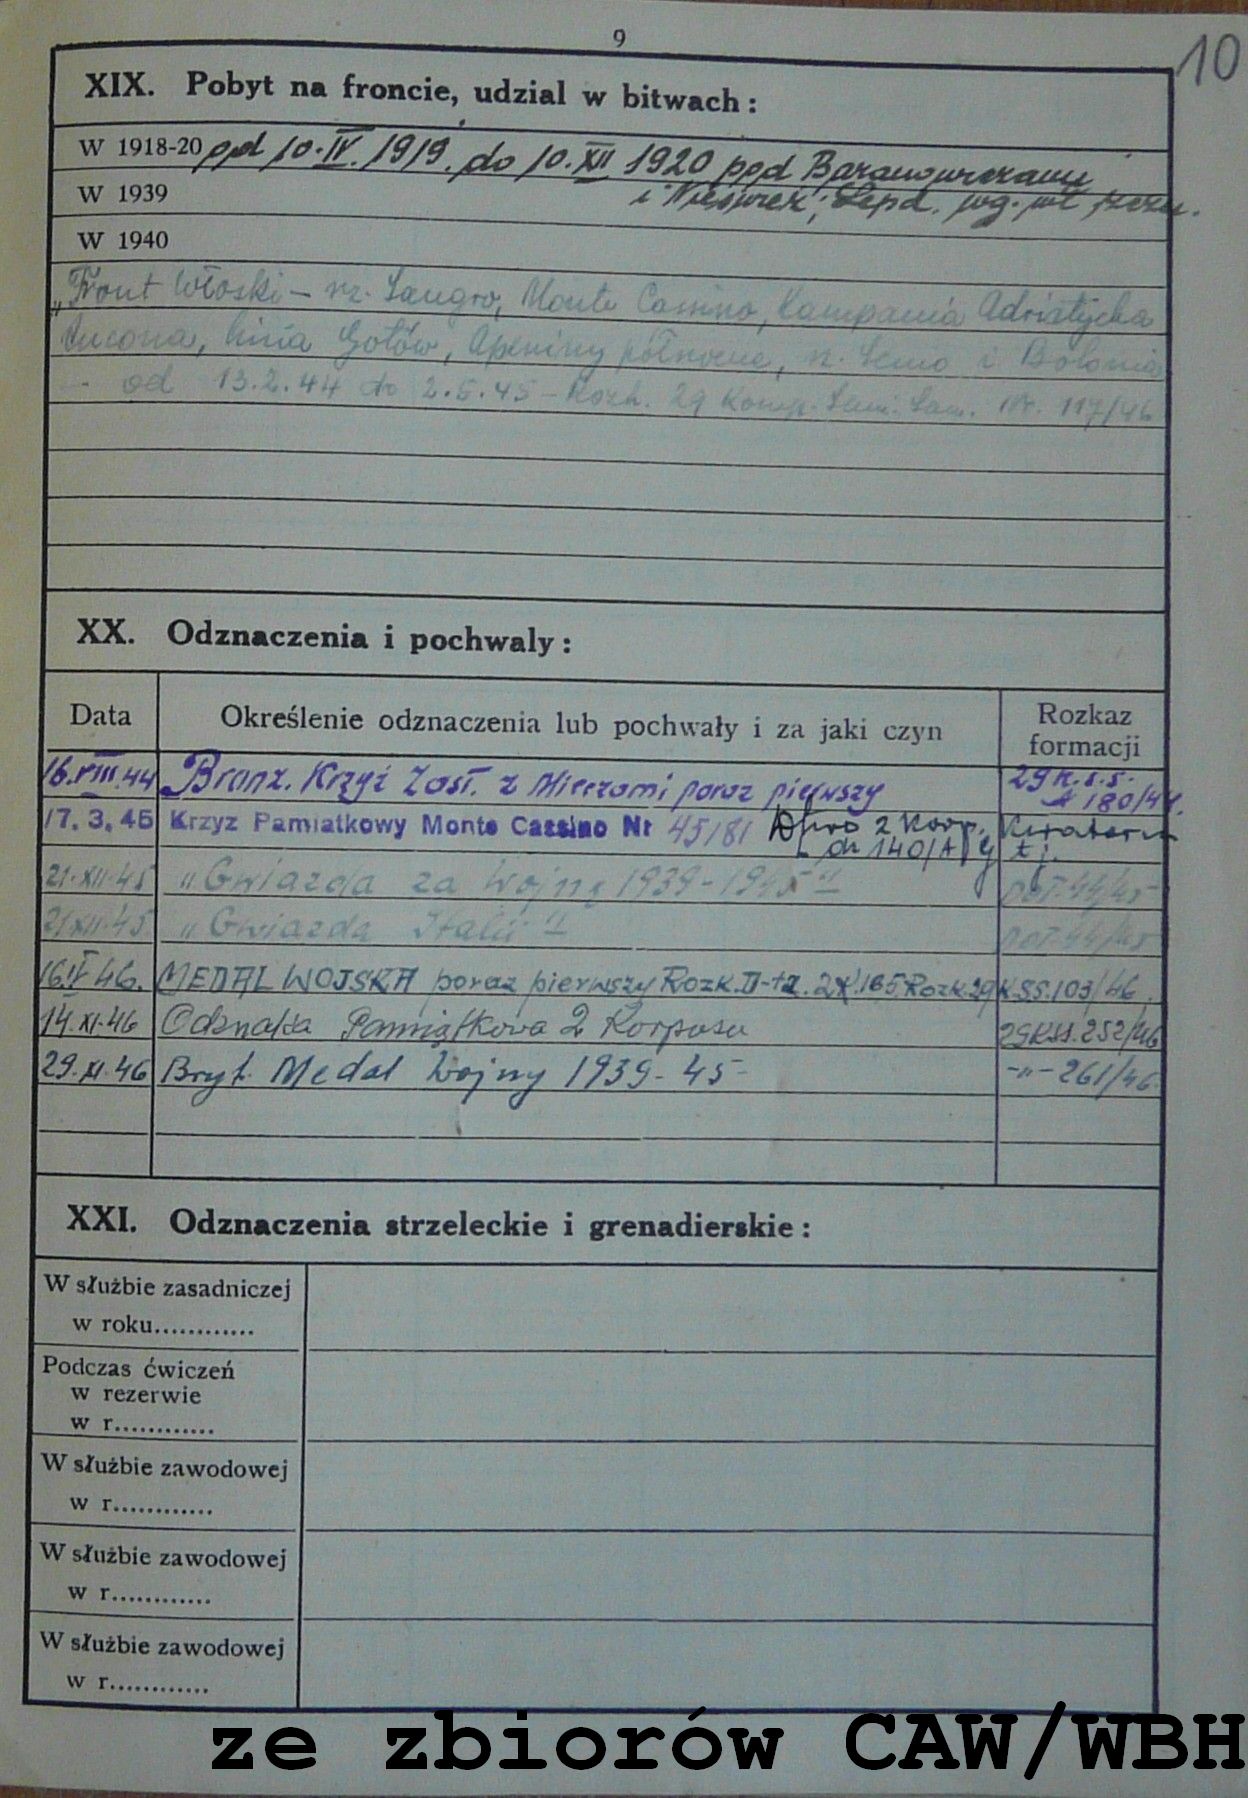 9
10
XIX. Pobyt na froncie, udzial w bitwach :
W 1918-20 od 10.IV.1919. do 10.XII 1920 pod Baranowiczami
W 1939 i
W 1940
„Front Włoski – rz. Sangro, Monte Cassino, Kampania Adriatycka
Ancona, Linia Gotów, Apeniny północne, rz. Senio i Bolonia
– od 13.2.44 do 2.5.45 – Rozk. 29 Komp. San. Sam. Nr. 117/46
XX. Odznaczenia i pochwaly :
Data Określenie odznaczenia lub pochwały i za jaki czyn Rozkaz formacji
16.VIII.44 Bronz. Krzyż Zasł. z Mieczami poraz pierwszy 29 K.S.S. 180/44.
17. 3. 45 Krzyz Pamiatkowy Monte Cassino Nr 45181 2 Korp.
140/A
21.XII.45 „Gwiazda za Wojnę 1939-1945" 44/45
21.XII.45 „Gwiazda Italii" 44/45
16.IV.46. MEDAL WOJSKA poraz pierwszy Rozk. 165 Rozk. 29 K.SS. 103/46.
14.XI.46 Odznaka Pamiątkowa 2 Korpusu 29KSS. 252/46
29.XI.46 Bryt. Medal Wojny 1939-45 -„- 261/46
XXI. Odznaczenia strzeleckie i grenadierskie :
W służbie zasadniczej
w roku............
Podczas ćwiczeń
w rezerwie
w r............
W służbie zawodowej
w r............
W służbie zawodowej
w r............
W służbie zawodowej
w r............
ze zbiorów CAW/WBH